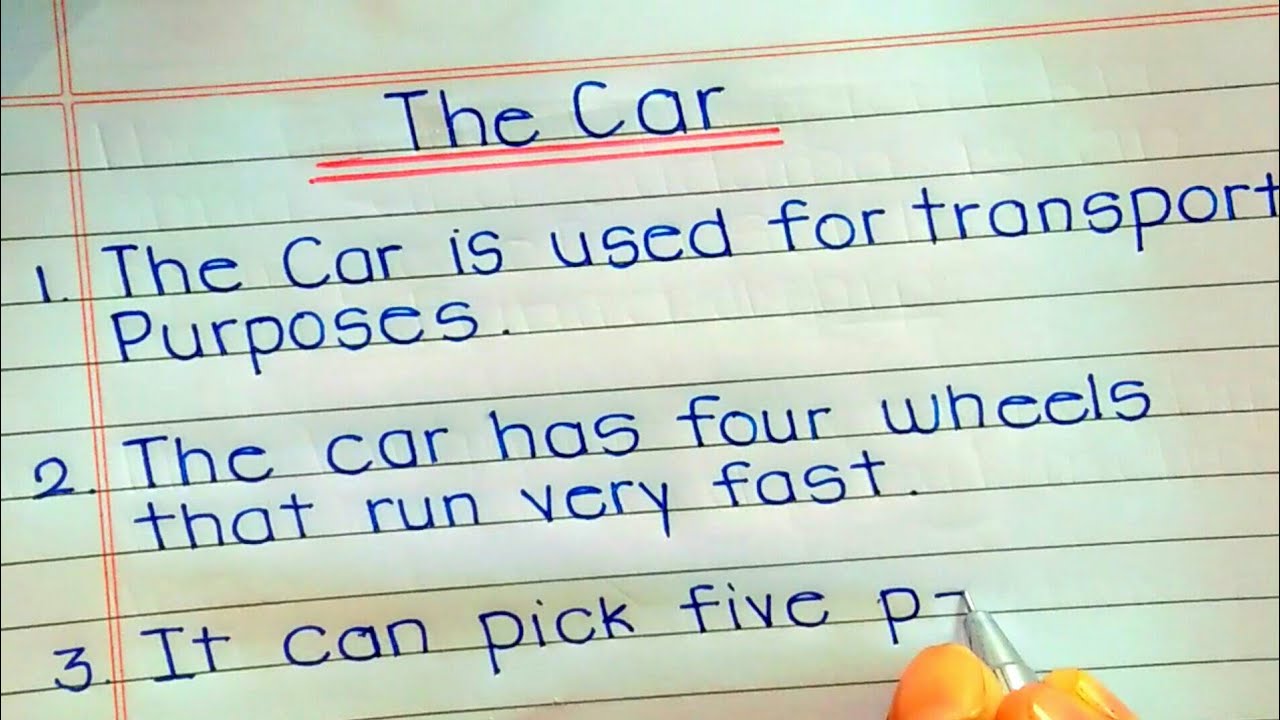 The Car
1. The Car is used for transport
Purposes.
2. The car has four wheels
that run very fast.
3. It can pick five p